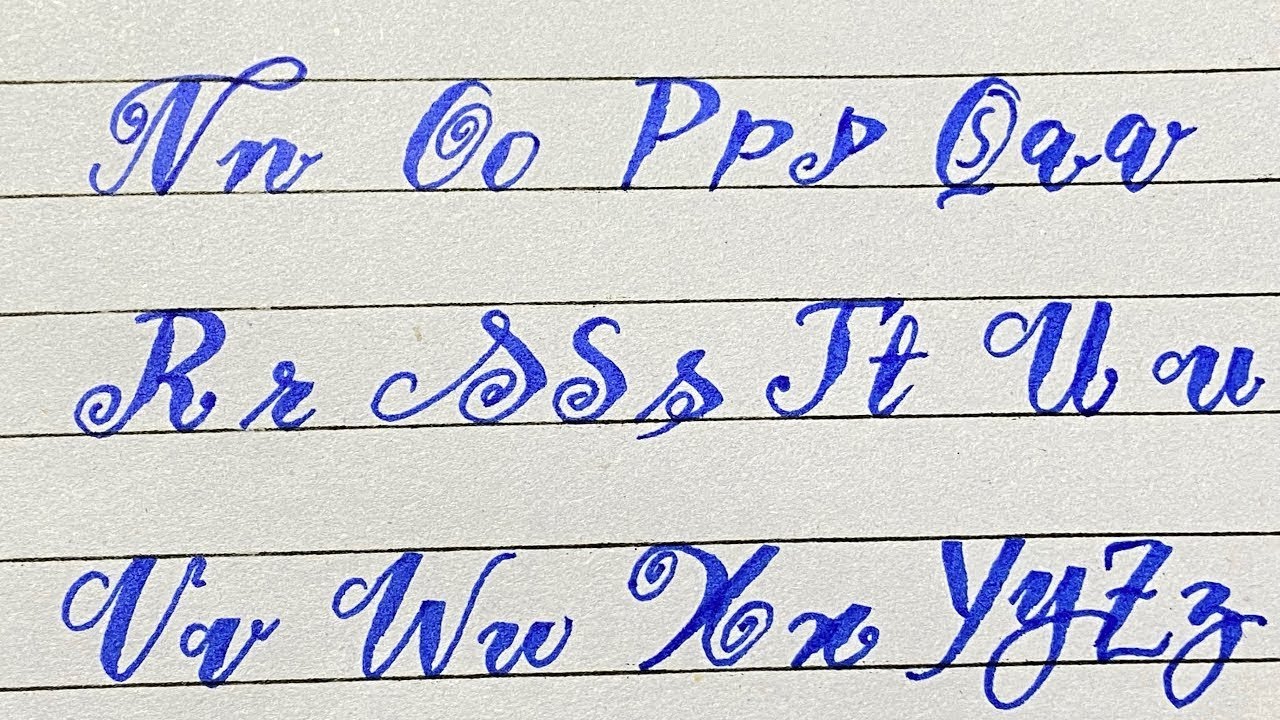 Nn Oo Ppp Qqq
Rr SSs Tt Uu
Vv Ww Xx YyZz